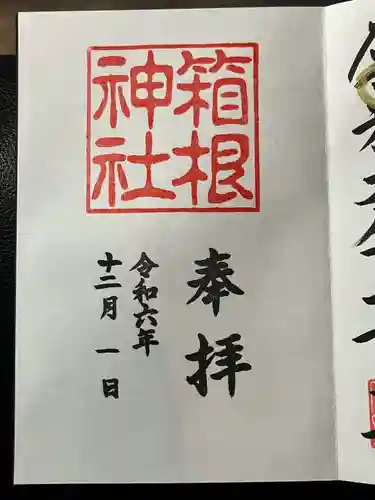 箱根
神社
奉拝
令和六年
十二月一日